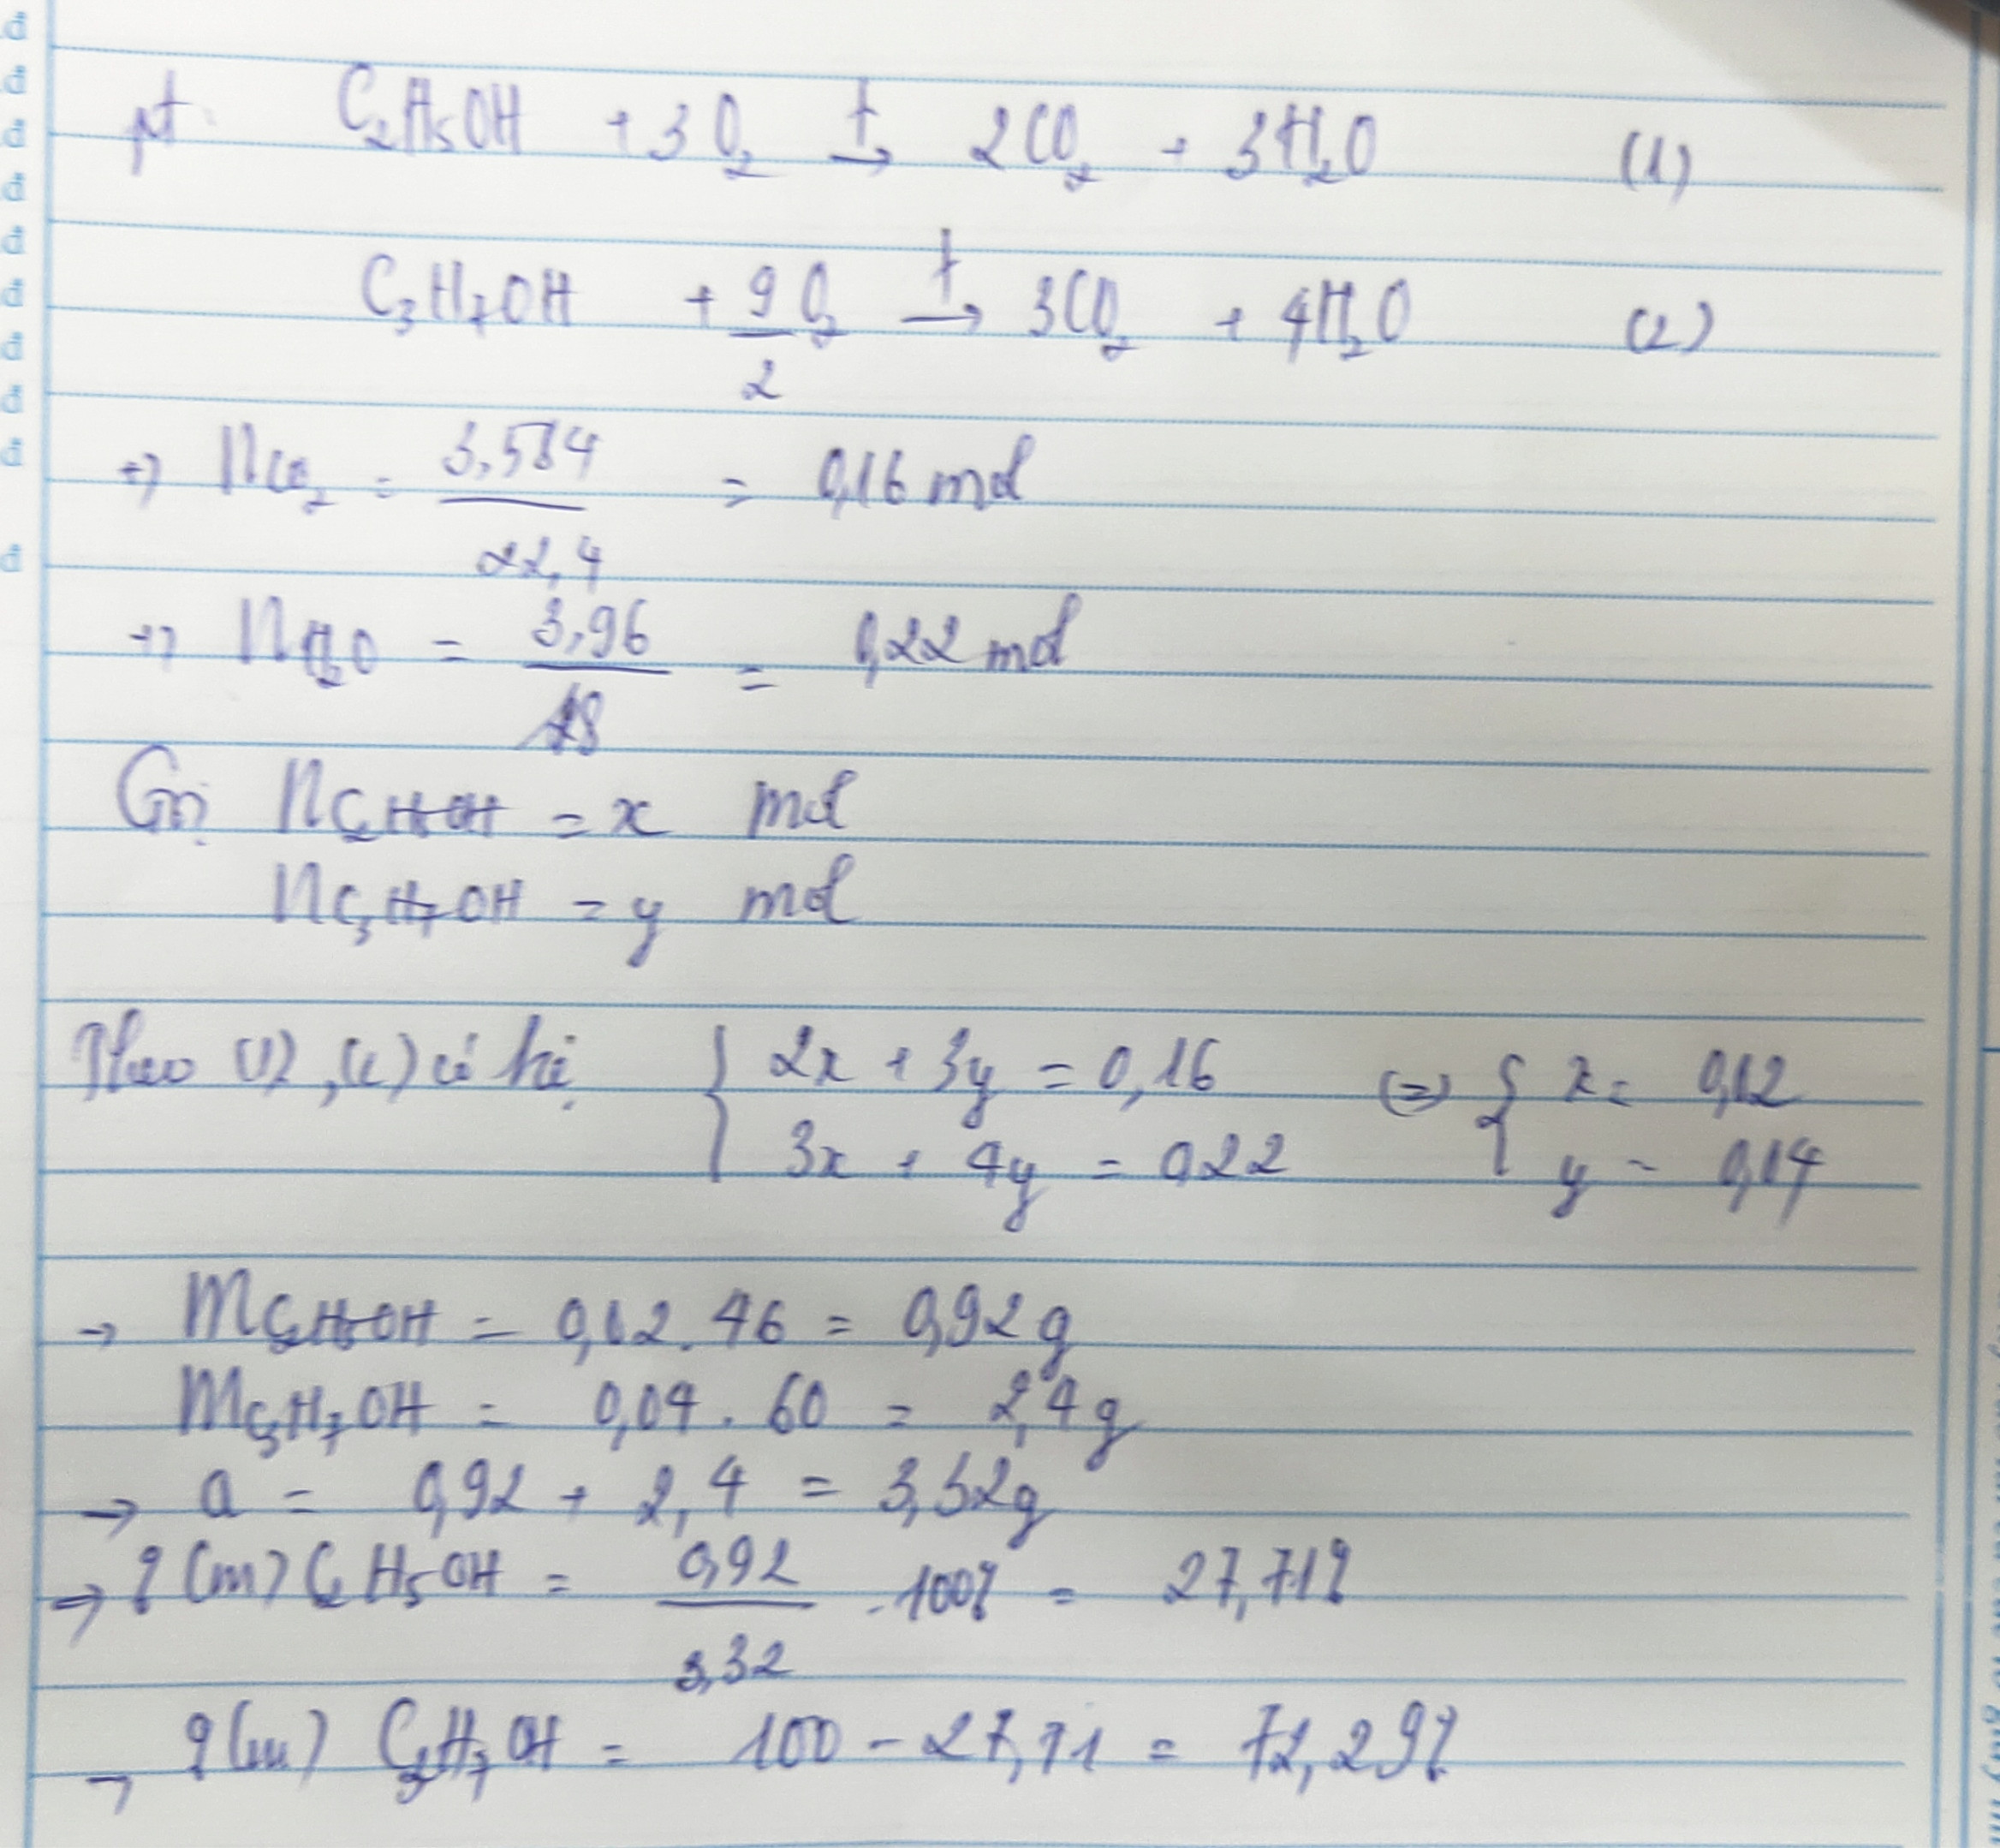 pt: C₂H₅OH + 3O₂ →(t) 2CO₂ + 3H₂O (1)
C₃H₇OH + 9/2 O₂ →(t) 3CO₂ + 4H₂O (2)
=> nCO₂ = 3,584/22,4 = 0,16 mol
=> nH₂O = 3,96/18 = 0,22 mol
Gọi nC₂H₅OH = x mol
nC₃H₇OH = y mol
Theo (1), (2) có hệ { 2x + 3y = 0,16 ; 3x + 4y = 0,22 (=) { x = 0,02 ; y = 0,04
→ mC₂H₅OH = 0,02 . 46 = 0,92g
mC₃H₇OH = 0,04 . 60 = 2,4g
→ a = 0,92 + 2,4 = 3,32g
→ %(m) C₂H₅OH = 0,92/3,32 . 100% = 27,71%
→ %(m) C₃H₇OH = 100 - 27,71 = 72,29%